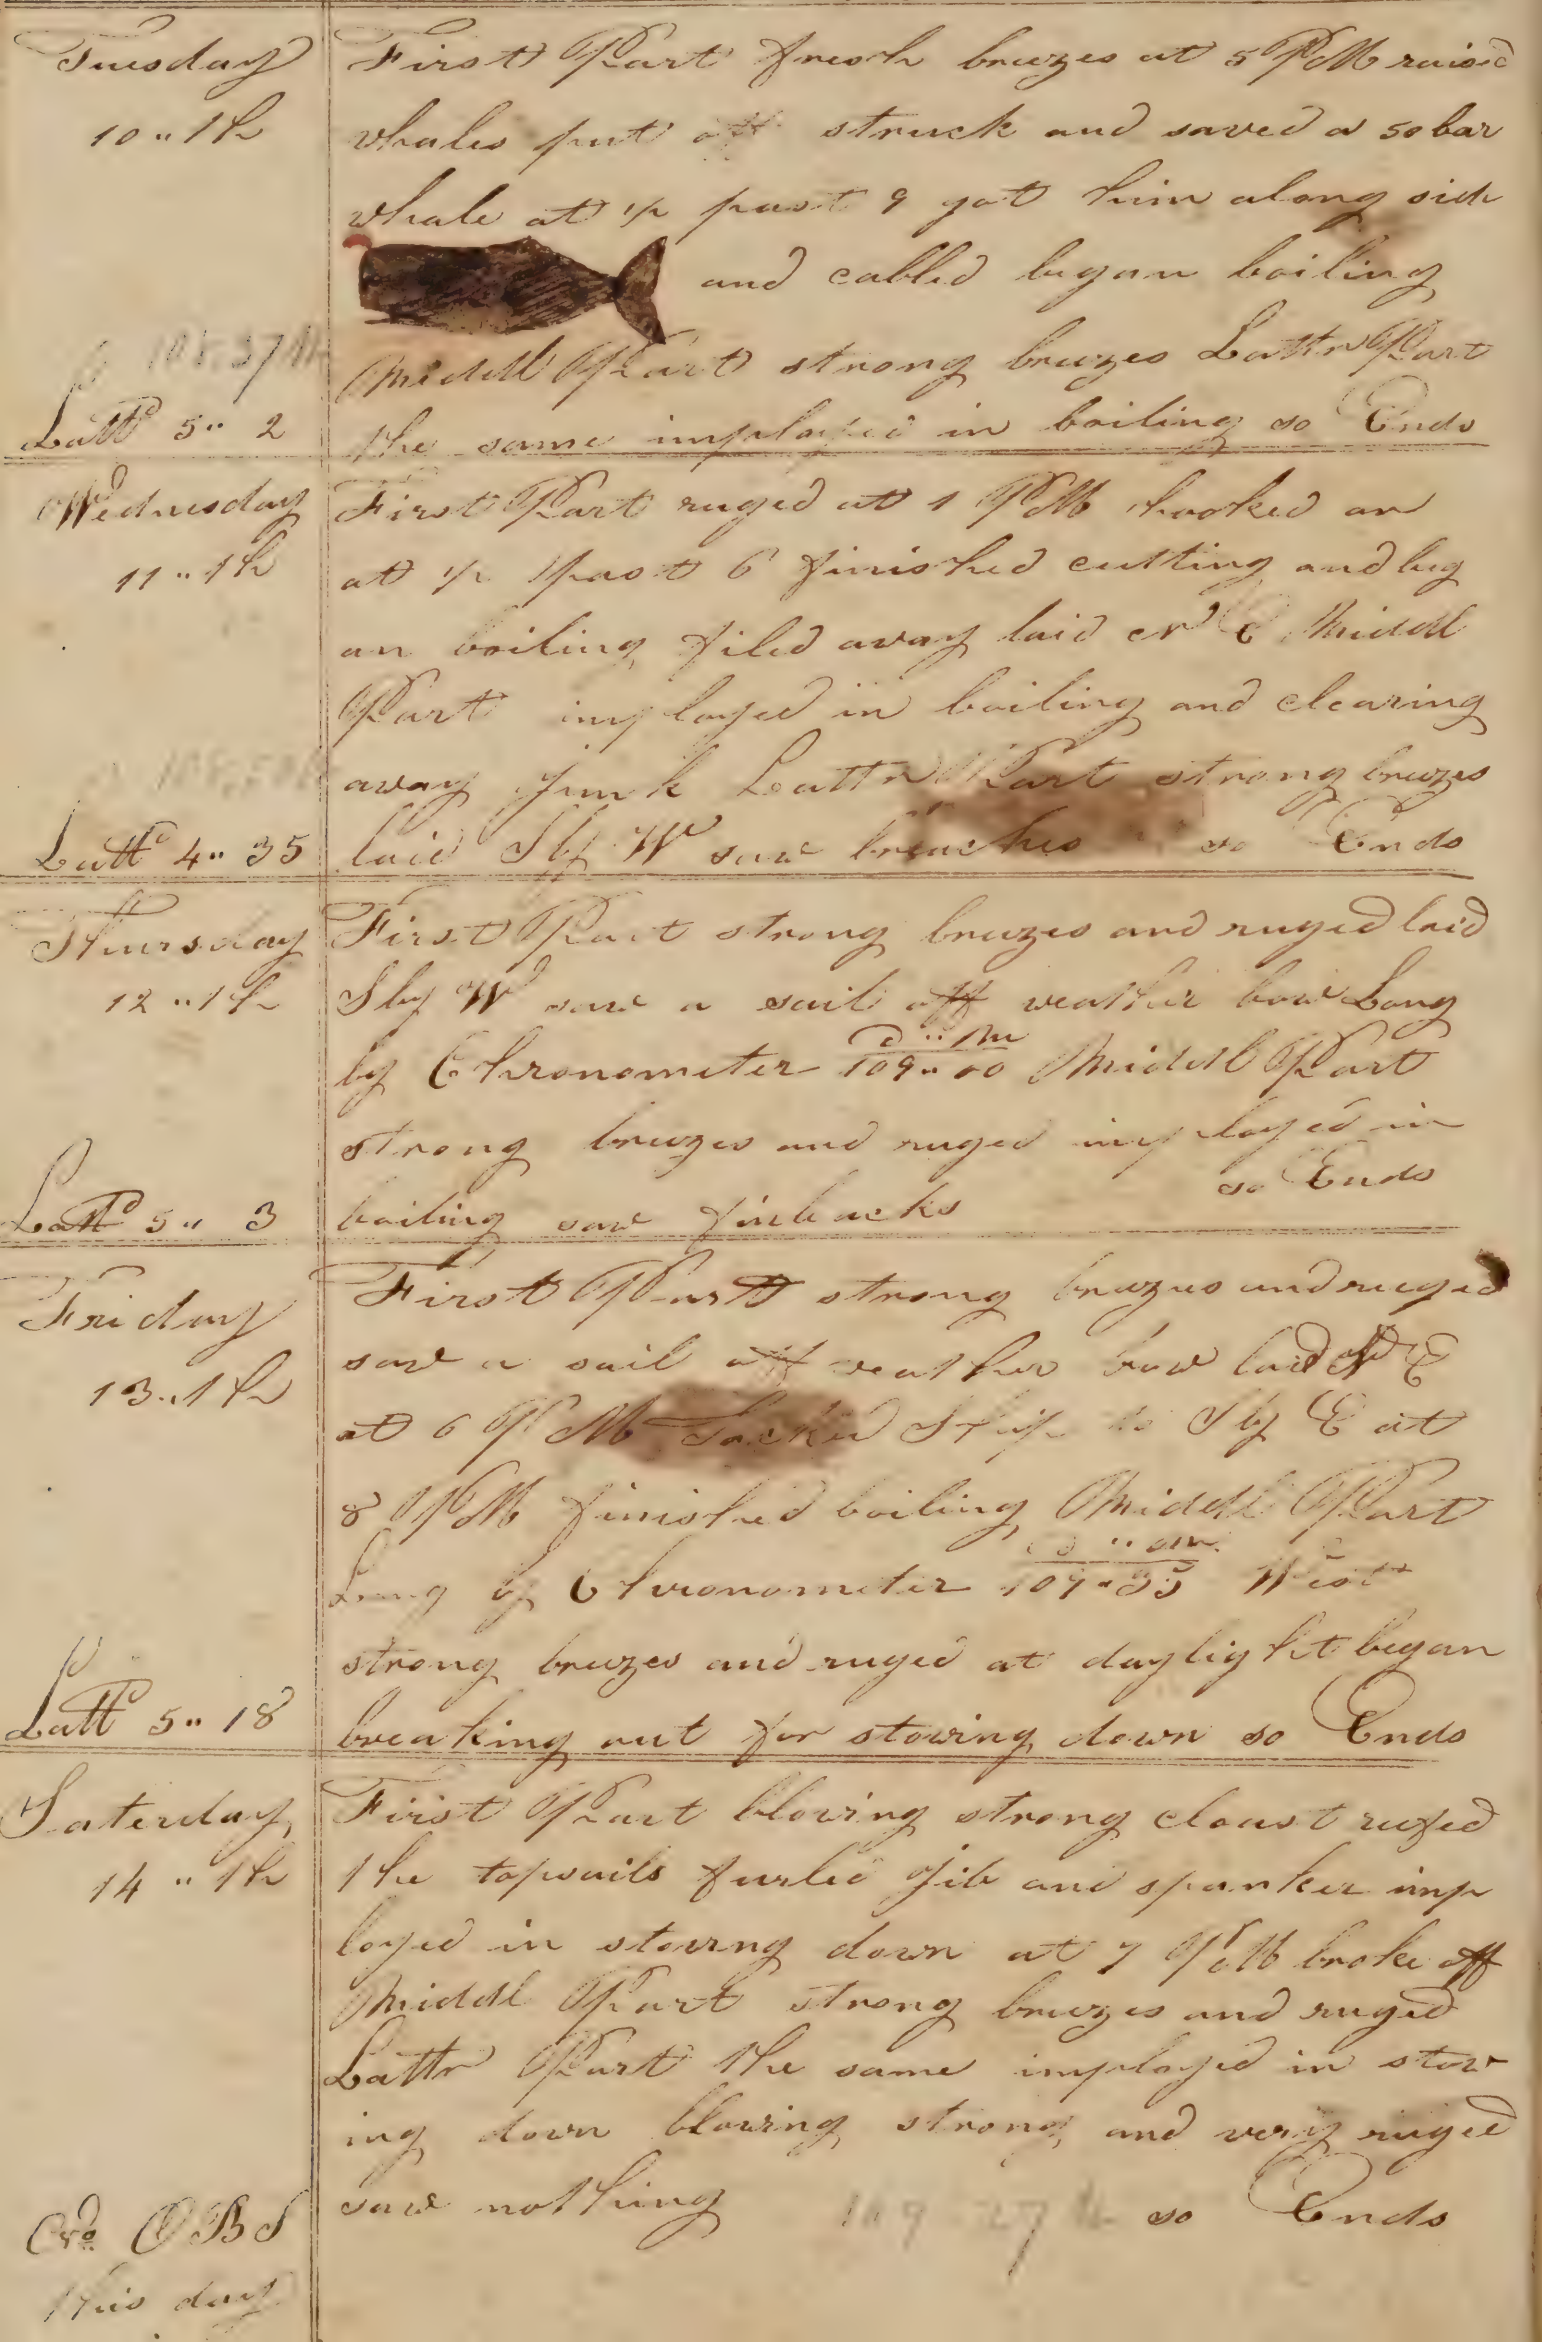 Tuesday
10 .. th
First Part fresh breezes at 5 PM raised
whales put off struck and saved a 50 bar
whale at ½ past 9 got him along side
and cabled began boiling
Middl Part strong breezes Lattr Part
Latt 5 .. 2
the same imployed in boiling so Ends
Wednesday
11 .. th
First Part ruged at 1 PM hooked on
at ½ past 6 finished cutting and beg
an boiling filed away laid N E Middl
Part imployed in boiling and clearing
away junk Lattr Part strong breezes
Latt 4 .. 35
laid S by W saw breaches so Ends
Thursday
12 .. th
First Part strong breezes and ruged laid
S by W saw a sail off weather bow Long
D .. M
by Chronometer 109 .. 00 Middl Part
strong breezes and ruged imployed in
Latt 5 .. 3
boiling saw finbacks so Ends
Friday
13 .. th
First Part strong breezes and ruged
saw a sail off weather bow laid N E
at 6 PM Tacked Ship to S by E at
8 PM finished boiling Middl Part
D .. M
Long by Chronometer West
strong breezes and ruged at daylight began
Latt 5 .. 18
breaking out for stowing down so Ends
Saterday
14 .. th
First Part blowing strong cloust reefed
the topsails furled Jib and spanker imp
loyed in stowing down at 7 PM broke off
Middl Part strong breezes and ruged
Lattr Part the same imployed in stow
ing down blowing strong and very ruged
saw nothing so Ends
No OBS
this day